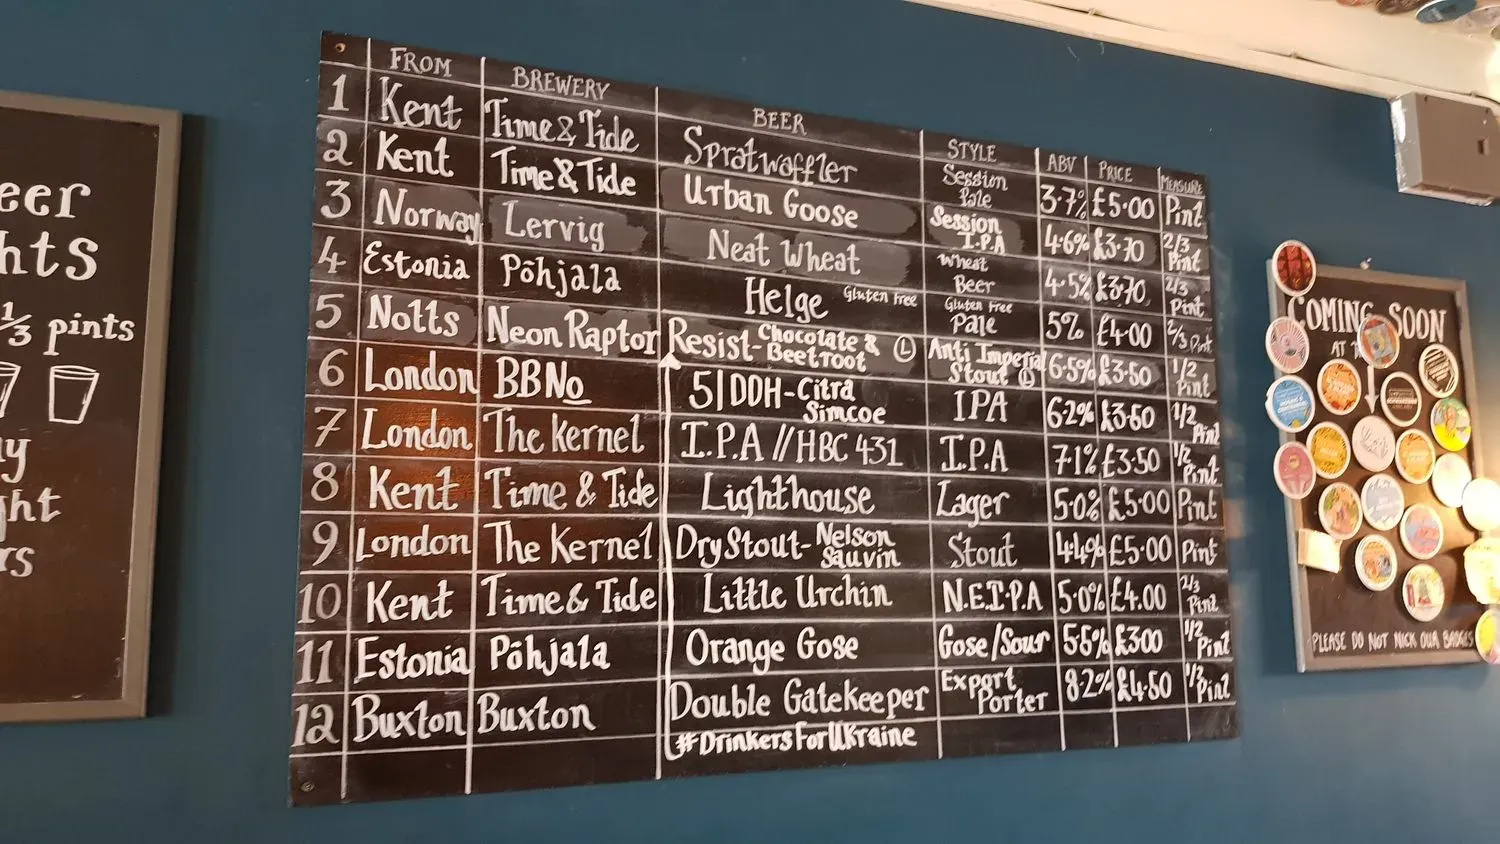 eer
hts
1/3 pints
y
ht
rs
FROM BREWERY BEER STYLE ABV PRICE MEASURE
1 Kent Time & Tide Spratwaffler Session Pale 3.7% £5.00 Pint
2 Kent Time & Tide Urban Goose Session I.P.A 4.6% £3.70 2/3 Pint
3 Norway Lervig Neat Wheat Wheat Beer 4.5% £3.70 2/3 Pint
4 Estonia Põhjala Helge Gluten Free Gluten Free Pale 5% £4.00 2/3 Pint
5 Notts Neon Raptor Resist - Chocolate & Beetroot Ⓛ Anti Imperial Stout Ⓛ 6.5% £3.50 1/2 Pint
6 London BBNo 51 DDH - Citra Simcoe IPA 6.2% £3.60 1/2 Pint
7 London The Kernel I.P.A // HBC 431 I.P.A 7.1% £3.50 1/2 Pint
8 Kent Time & Tide Lighthouse Lager 5.0% £5.00 Pint
9 London The Kernel Dry Stout - Nelson Sauvin Stout 4.4% £5.00 Pint
10 Kent Time & Tide Little Urchin N.E.I.P.A 5.0% £4.00 2/3 Pint
11 Estonia Põhjala Orange Gose Gose/Sour 5.5% £3.00 1/2 Pint
12 Buxton Buxton Double Gatekeeper Export Porter 8.2% £4.50 1/2 Pint
#DrinkersForUkraine
COMING SOON
AT
PLEASE DO NOT NICK OUR BADGES